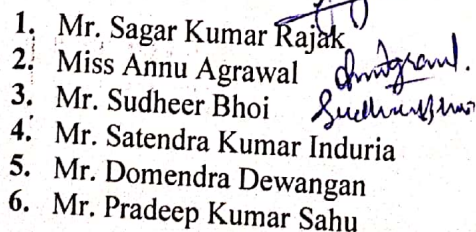 1. Mr. Sagar Kumar Rajak
2. Miss Annu Agrawal
3. Mr. Sudheer Bhoi
4. Mr. Satendra Kumar Induria
5. Mr. Domendra Dewangan
6. Mr. Pradeep Kumar Sahu